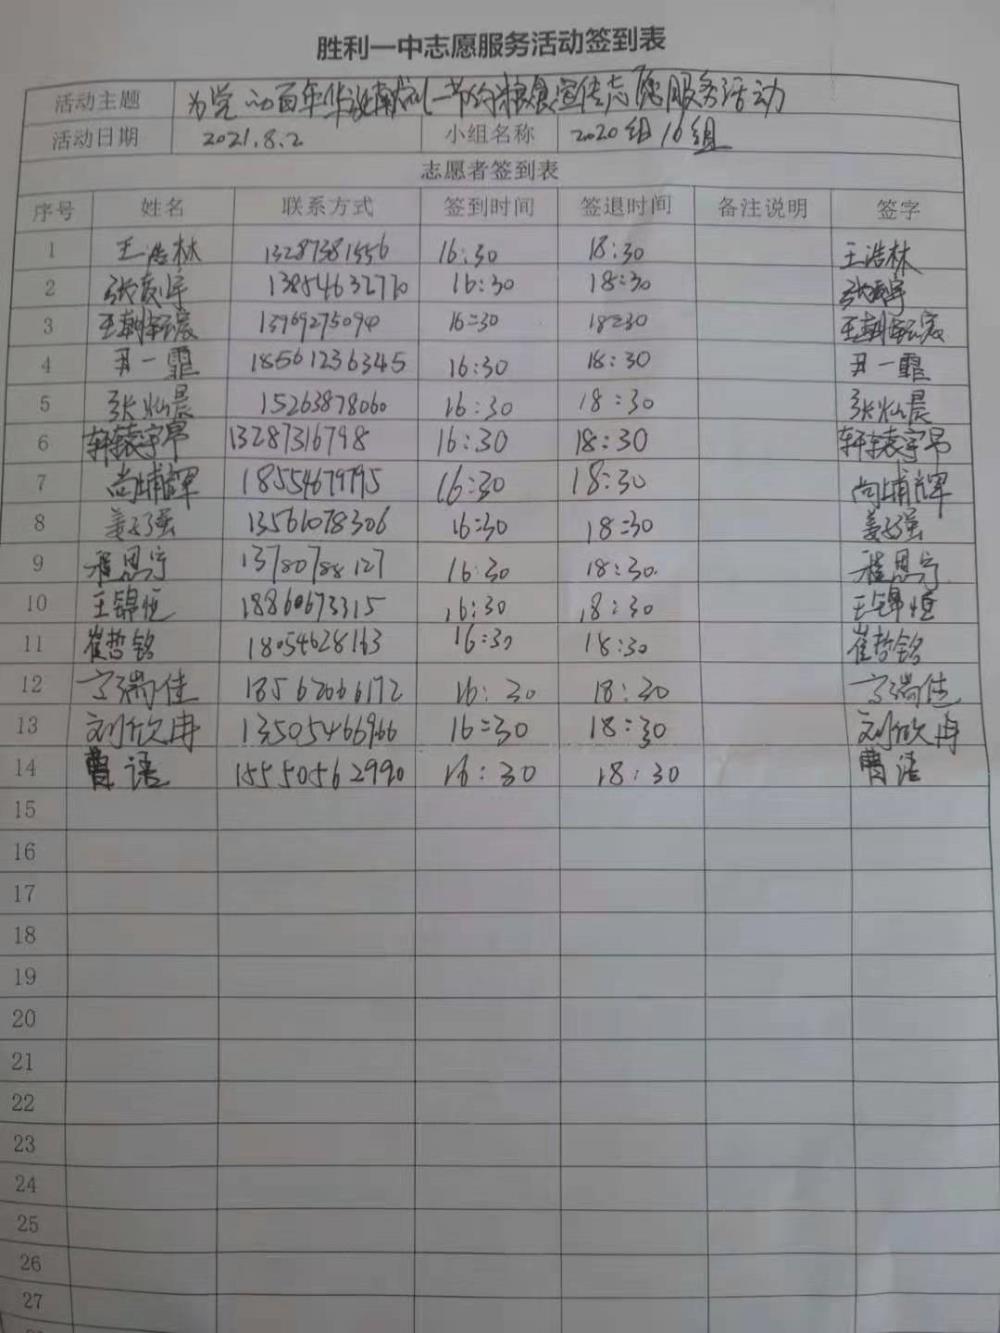 胜利一中志愿服务活动签到表
活动主题 为党的百年华诞献礼—节约粮食宣传志愿服务活动
活动日期 2021.8.2 小组名称 2020级16组
志愿者签到表
序号 姓名 联系方式 签到时间 签退时间 备注说明 签字
1 王浩林 13287381556 16:30 18:30 王浩林
2 13854632770 16:30 18:30
3 13969275094 16:30 18:30
4 尹一霏 18561236345 16:30 18:30 尹一霏
5 张灿晨 15263878060 16:30 18:30 张灿晨
6 轩辕宇昂 13287316798 16:30 18:30 轩辕宇昂
7 尚埔辉 18554679795 16:30 18:30 尚埔辉
8 姜子强 13561078306 16:30 18:30 姜子强
9 程思宁 13780788127 16:30 18:30 程思宁
10 王锦恒 18860673315 16:30 18:30 王锦恒
11 崔哲铭 18054628163 16:30 18:30 崔哲铭
12 18562066172 16:30 18:30
13 刘欣冉 13505466966 16:30 18:30 刘欣冉
14 曹语 15550562990 16:30 18:30 曹语
15
16
17
18
19
20
21
22
23
24
25
26
27